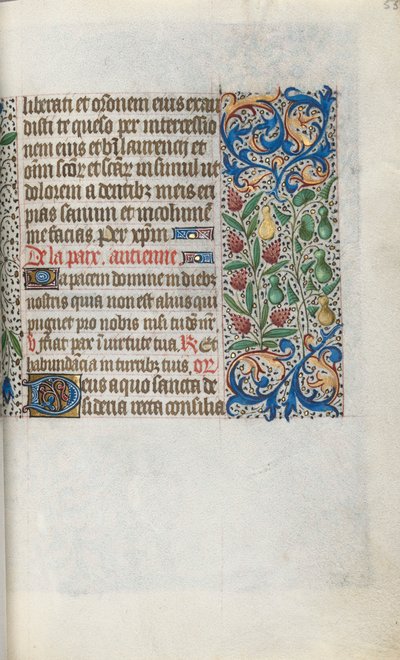 55
liberati et orõnem eius exau
disti te queso per intercessio
nem eius et bti laurencij et
oim̃ scõꝝ et scãꝝ insimul ut
dolorem a dentibz meis eri
pias sanum et incolumẽ
me facias Per xp̃m
De la paix. antienne.
Da pacem domine in diebz
nostris quia non est alius qui
pugnet pro nobis nisi tu ds nr̃
V fiat pax ĩ uirtute tua. R Et
habundãcia in turribz tuis. or
Deus a quo sancta de
sideria recta consilia